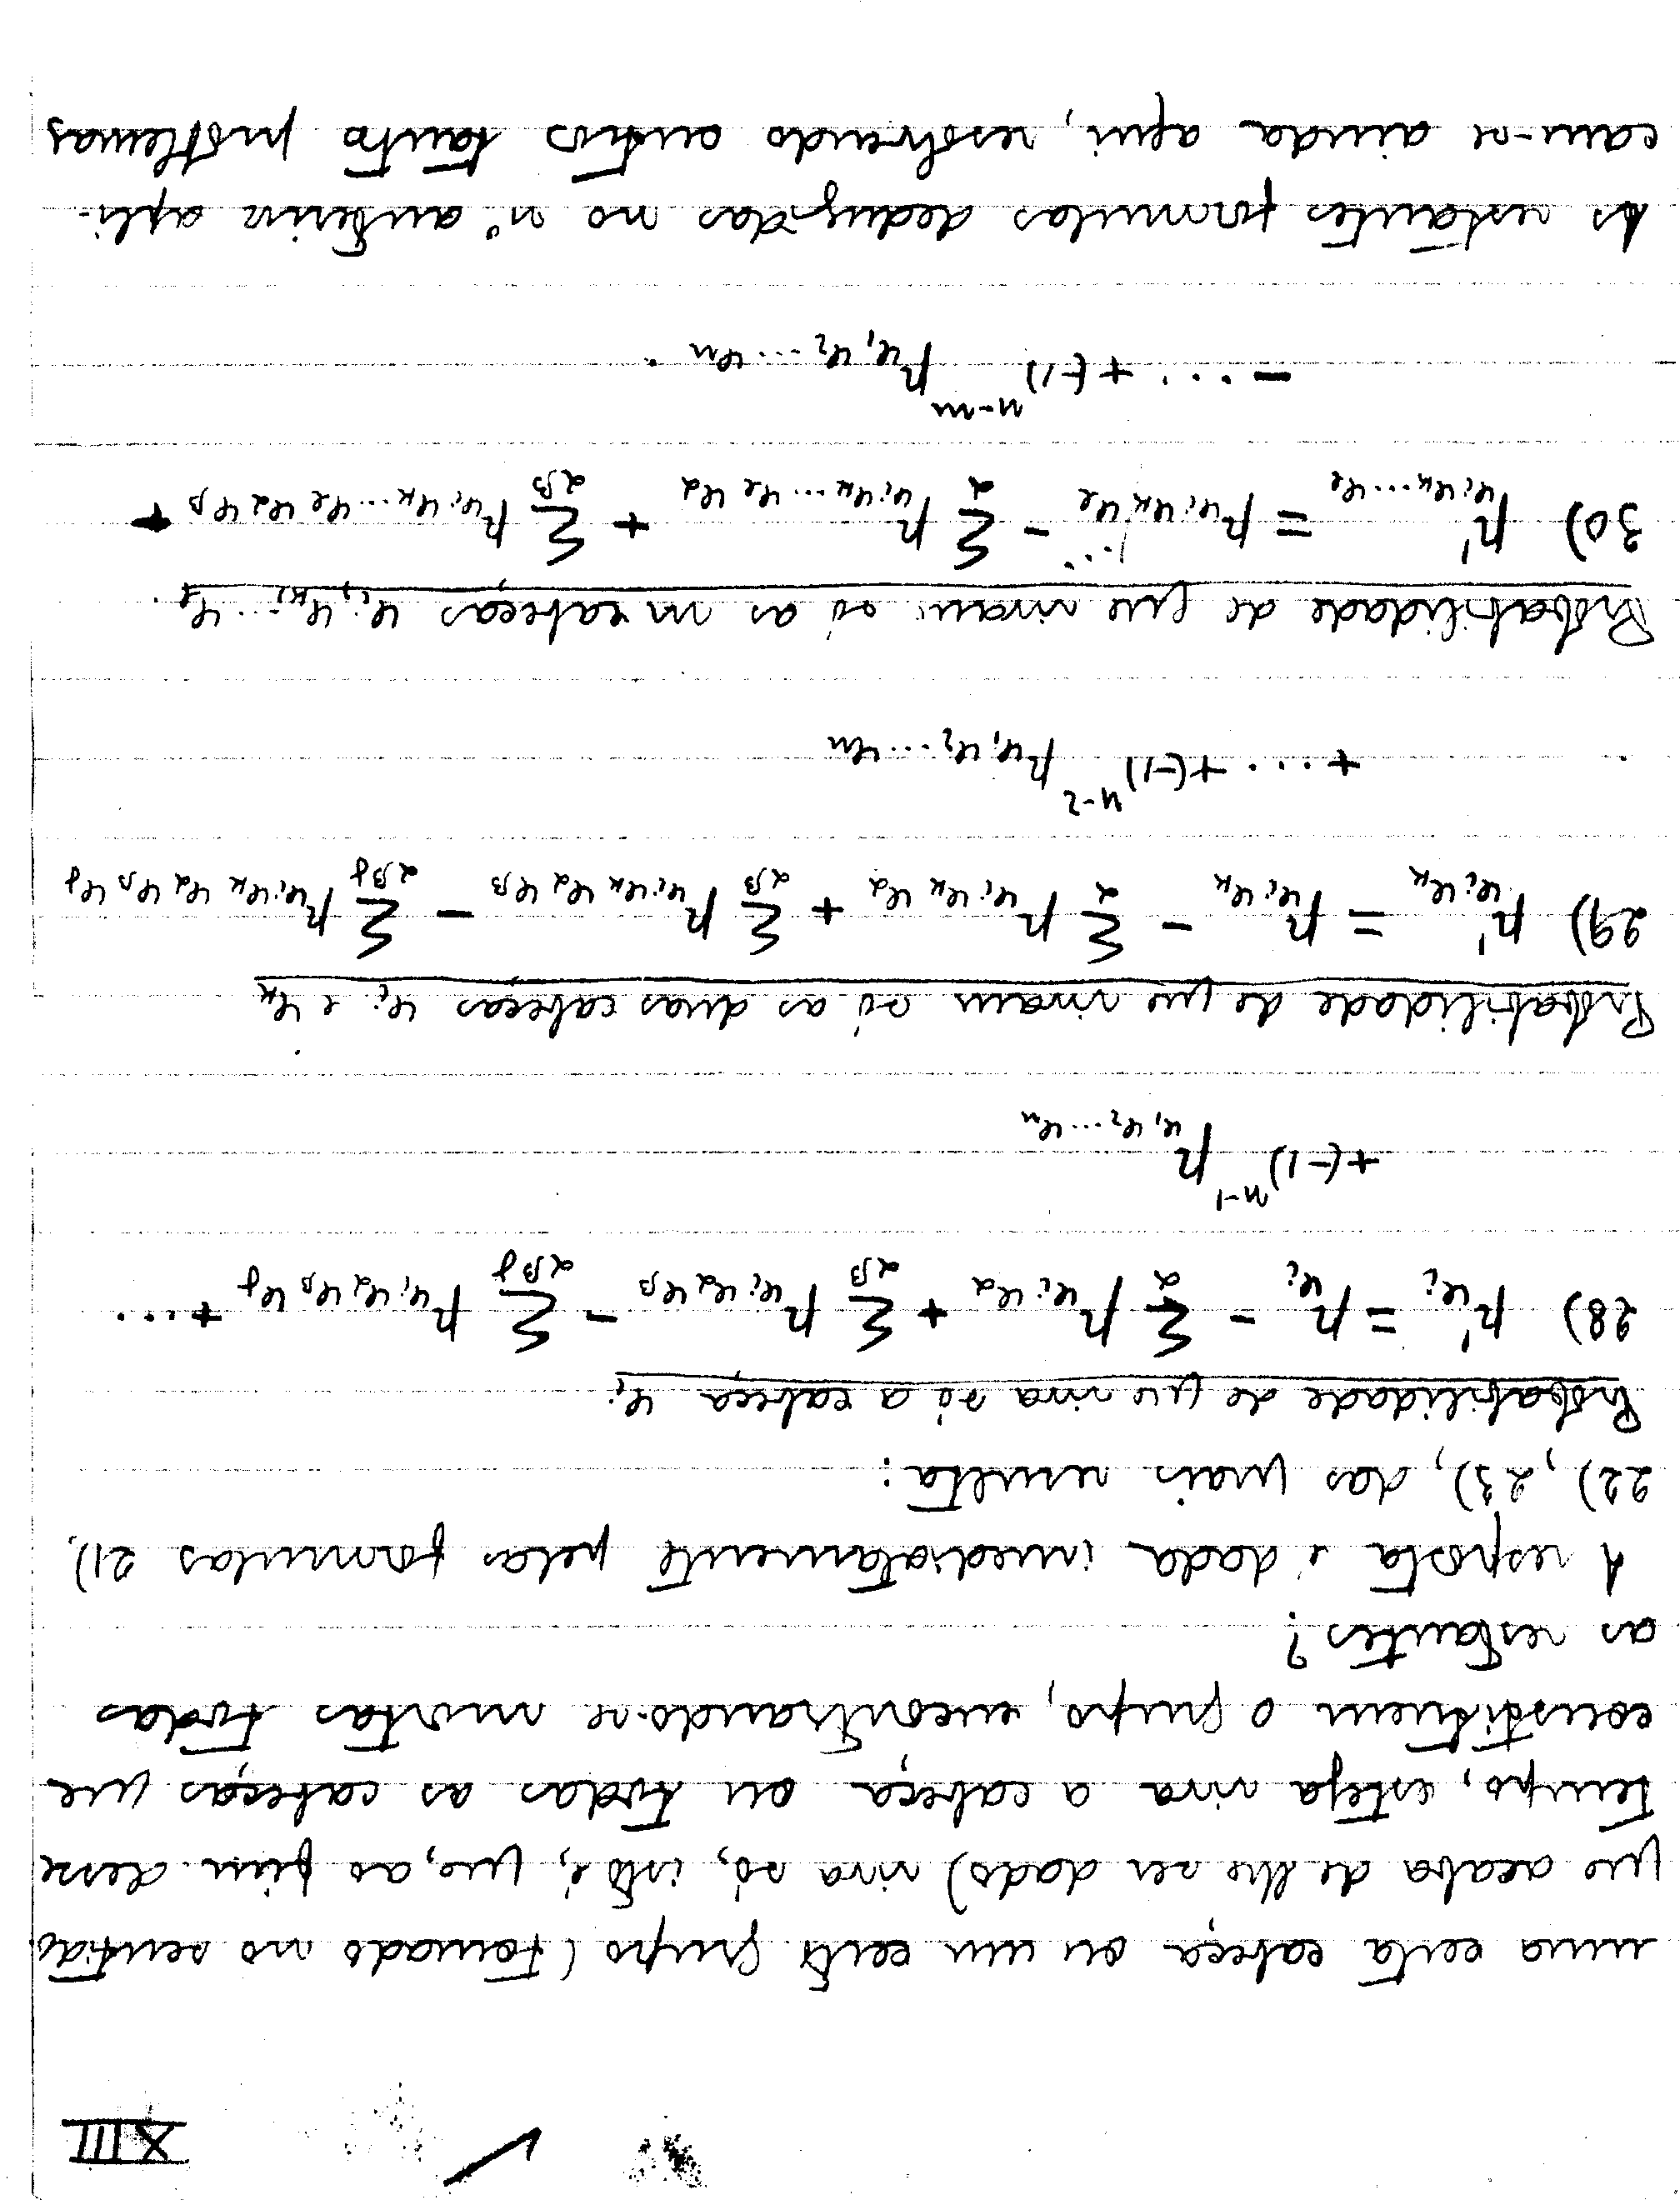 XIII
uma certa cabeça ou um certo grupo (tomado no sentido
que acaba de lhe ser dado) viva só, isto é, que, ao fim desse
tempo, esteja viva a cabeça ou todas as cabeças que
constituem o grupo, encontrando-se mortas todas
as restantes?
A resposta é dada imediatamente pelas formulas 21),
22), 23), das quais resulta:
Probabilidade de que viva só a cabeça φi
28) p'φi = pφi − Σα pφiφα + Σαβ pφiφαφβ − Σαβγ pφiφαφβφγ + ...
+(−1)^n−1 pφ1φ2...φn
Probabilidade de que vivam só as duas cabeças φi e φk
29) p'φiφk = pφiφk − Σα pφiφkφα + Σαβ pφiφkφαφβ − Σαβγ pφiφkφαφβφγ
+ ... +(−1)^n−2 pφ1φ2...φn
Probabilidade de que vivam só as m cabeças φi, φk, ... φl.
30) p'φiφk...φl = pφiφk...φl − Σα pφiφk...φlφα + Σαβ pφiφk...φlφαφβ +
− ... +(−1)^n−m pφ1φ2...φn.
As restantes formulas deduzidas no nº anterior apli-
cam-se ainda aqui, resolvendo outros tantos problemas